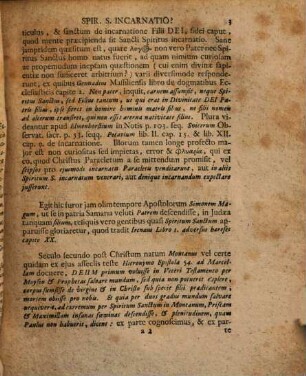 SPIR. S. INCARNATIO! 3
ticulus, & sanctum de incarnatione Filii DEI, fidei caput,
quod mente præcipienda sit Sancti Spiritus incarnatio. Sane
jampridem quæsitum est, quare λόγος non vero Pater nec Spi-
ritus Sanctus homo natus fuerit, ad quam nimium curiosam
ne propemodum ineptam quæstionem (cui enim divina sapi-
entia non sufficeret arbitrium?) varii diversimode responde-
runt, ex quibus Gennadius Massiliensis libro de dogmatibus Ec-
clesiasticis capite 2. Non pater, inquit, carnem assumsit, neque Spi-
ritus Sanctus, sed Filius tantum, ut qui erat in Divinitate DEI Pa-
tris filius, ipse fieret in homine hominis matris filius, ne filii nomen
ad alterum transiret, qui non esset æterna nativitate filius. Plura vi-
deantur apud Elmenhorstium in Notis p. 105. seq. Suicerum Ob-
servat. sacr. p. 33. seqq. Petavium lib. II. cap. 15. & lib. XII.
cap. 9. de incarnatione. Illorum tamen longe profecto ma-
jor est non curiositas sed impietas, error & φλυαρία, qui ex
eo, quod Christus Paracletum a se mittendum promisit, vel
seipsos pro ejusmodi incarnato Paracleto venditarunt, aut in aliis
Spiritum S. incarnatum venerari, aut denique incarnandum expectare
jusserunt.
Egit hic furor jam olim tempore Apostolorum Simonem Ma-
gum, ut se in patria Samaria veluti Patrem descendisse, in Judæa
tanquam filium, reliquis vero gentibus quasi Spiritum Sanctum ap-
paruisse gloriaretur, quod tradit Irenæus Libro 1. adversus hæreses
capite XX.
Seculo secundo post Christum natum Montanus vel certe
quidam ex ejus asseclis teste Hieronymo Epistola 54. ad Marcel-
lam docuere, DEUM primum voluisse in Veteri Testamento per
Moysen & Prophetas salvare mundum, sed quia non potuerit explere,
corpus sumsisse de virgine & in Christo sub specie filii prædicantem,
mortem obiisse pro nobis. Et quia per duos gradus mundum salvare
nequiverit, ad extremum per Spiritum Sanctum in Montanum, Priscam
& Maximillam insanas fœminas descendisse, & plenitudinem, quam
Paulus non habuerit, dicens: ex parte cognoscimus, & ex par-
a 2 te